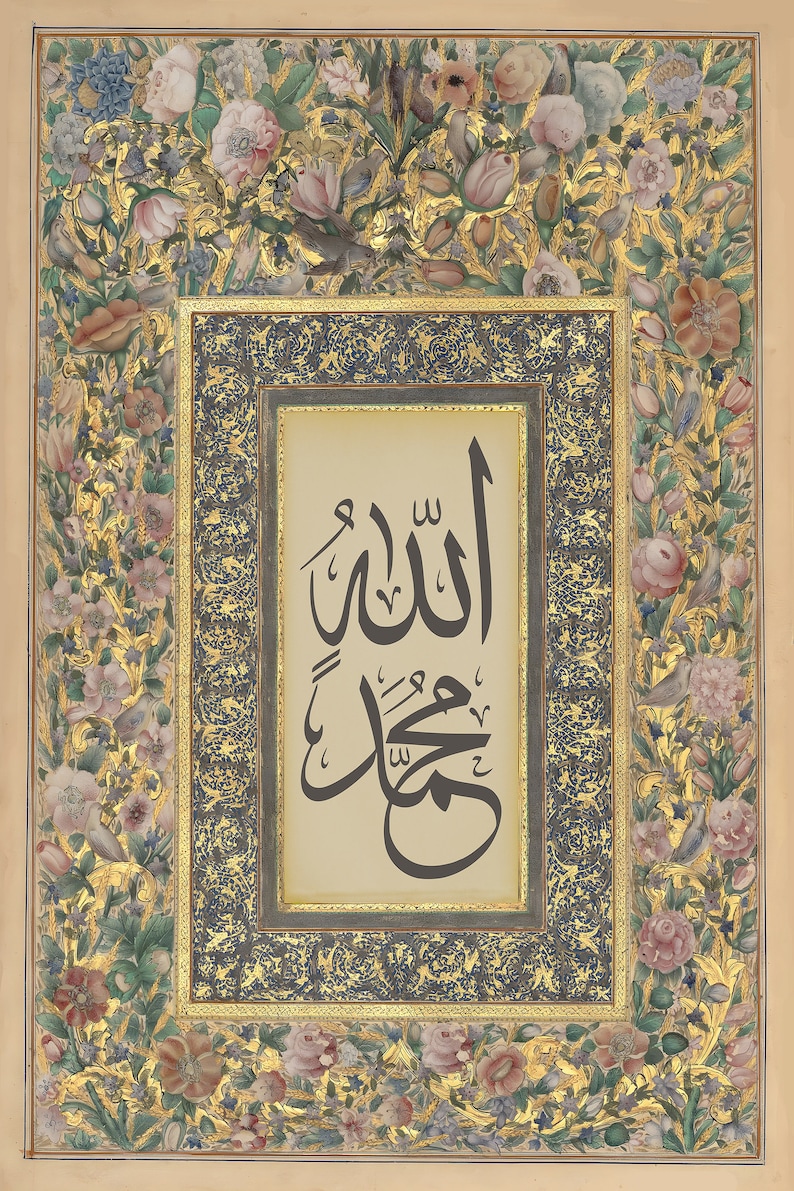 اللّهُ
مُحَمَّد